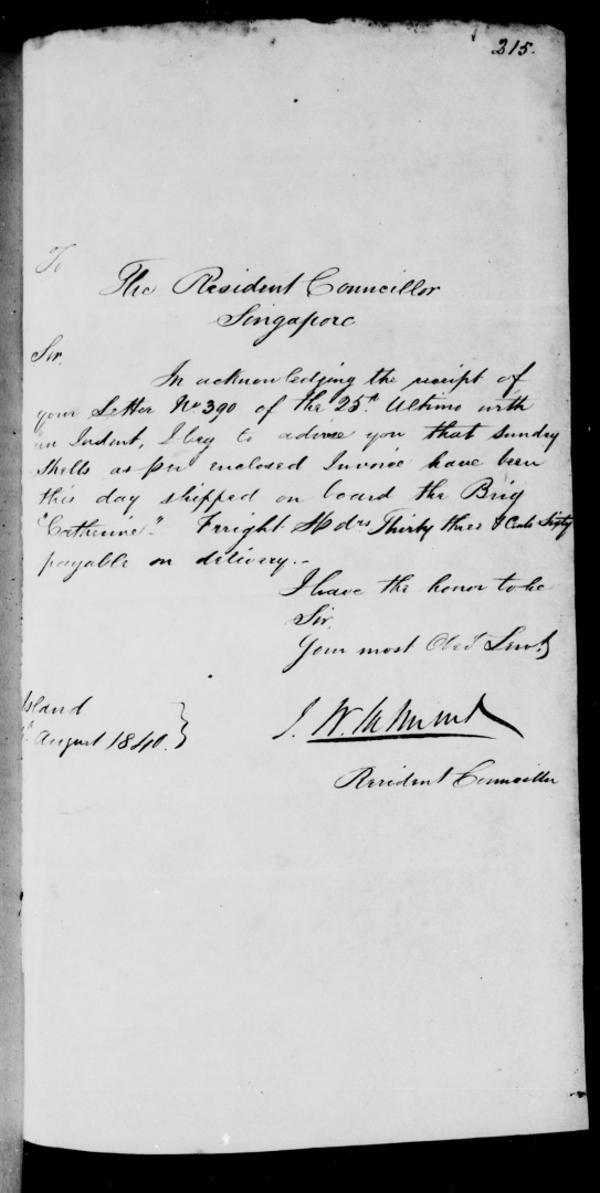 215.
To
The Resident Councillor
Singapore
Sir,
In acknowledging the receipt of
your Letter No 390 of the 25th Ultimo with
an Indent, I beg to advise you that sundry
Shells as per enclosed Invoice have been
this day shipped on board the Brig
"Catherine". Freight Sp drs Thirty three & Cents Sixty
payable on delivery..
I have the honor to be
Sir,
Your most Obedt Servt
Island
August 1840.
J. W.
Resident Councillor